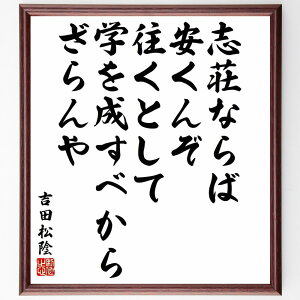 志荘ならば
安くんぞ
往くとして
学を成すべから
ざらんや
吉田松陰